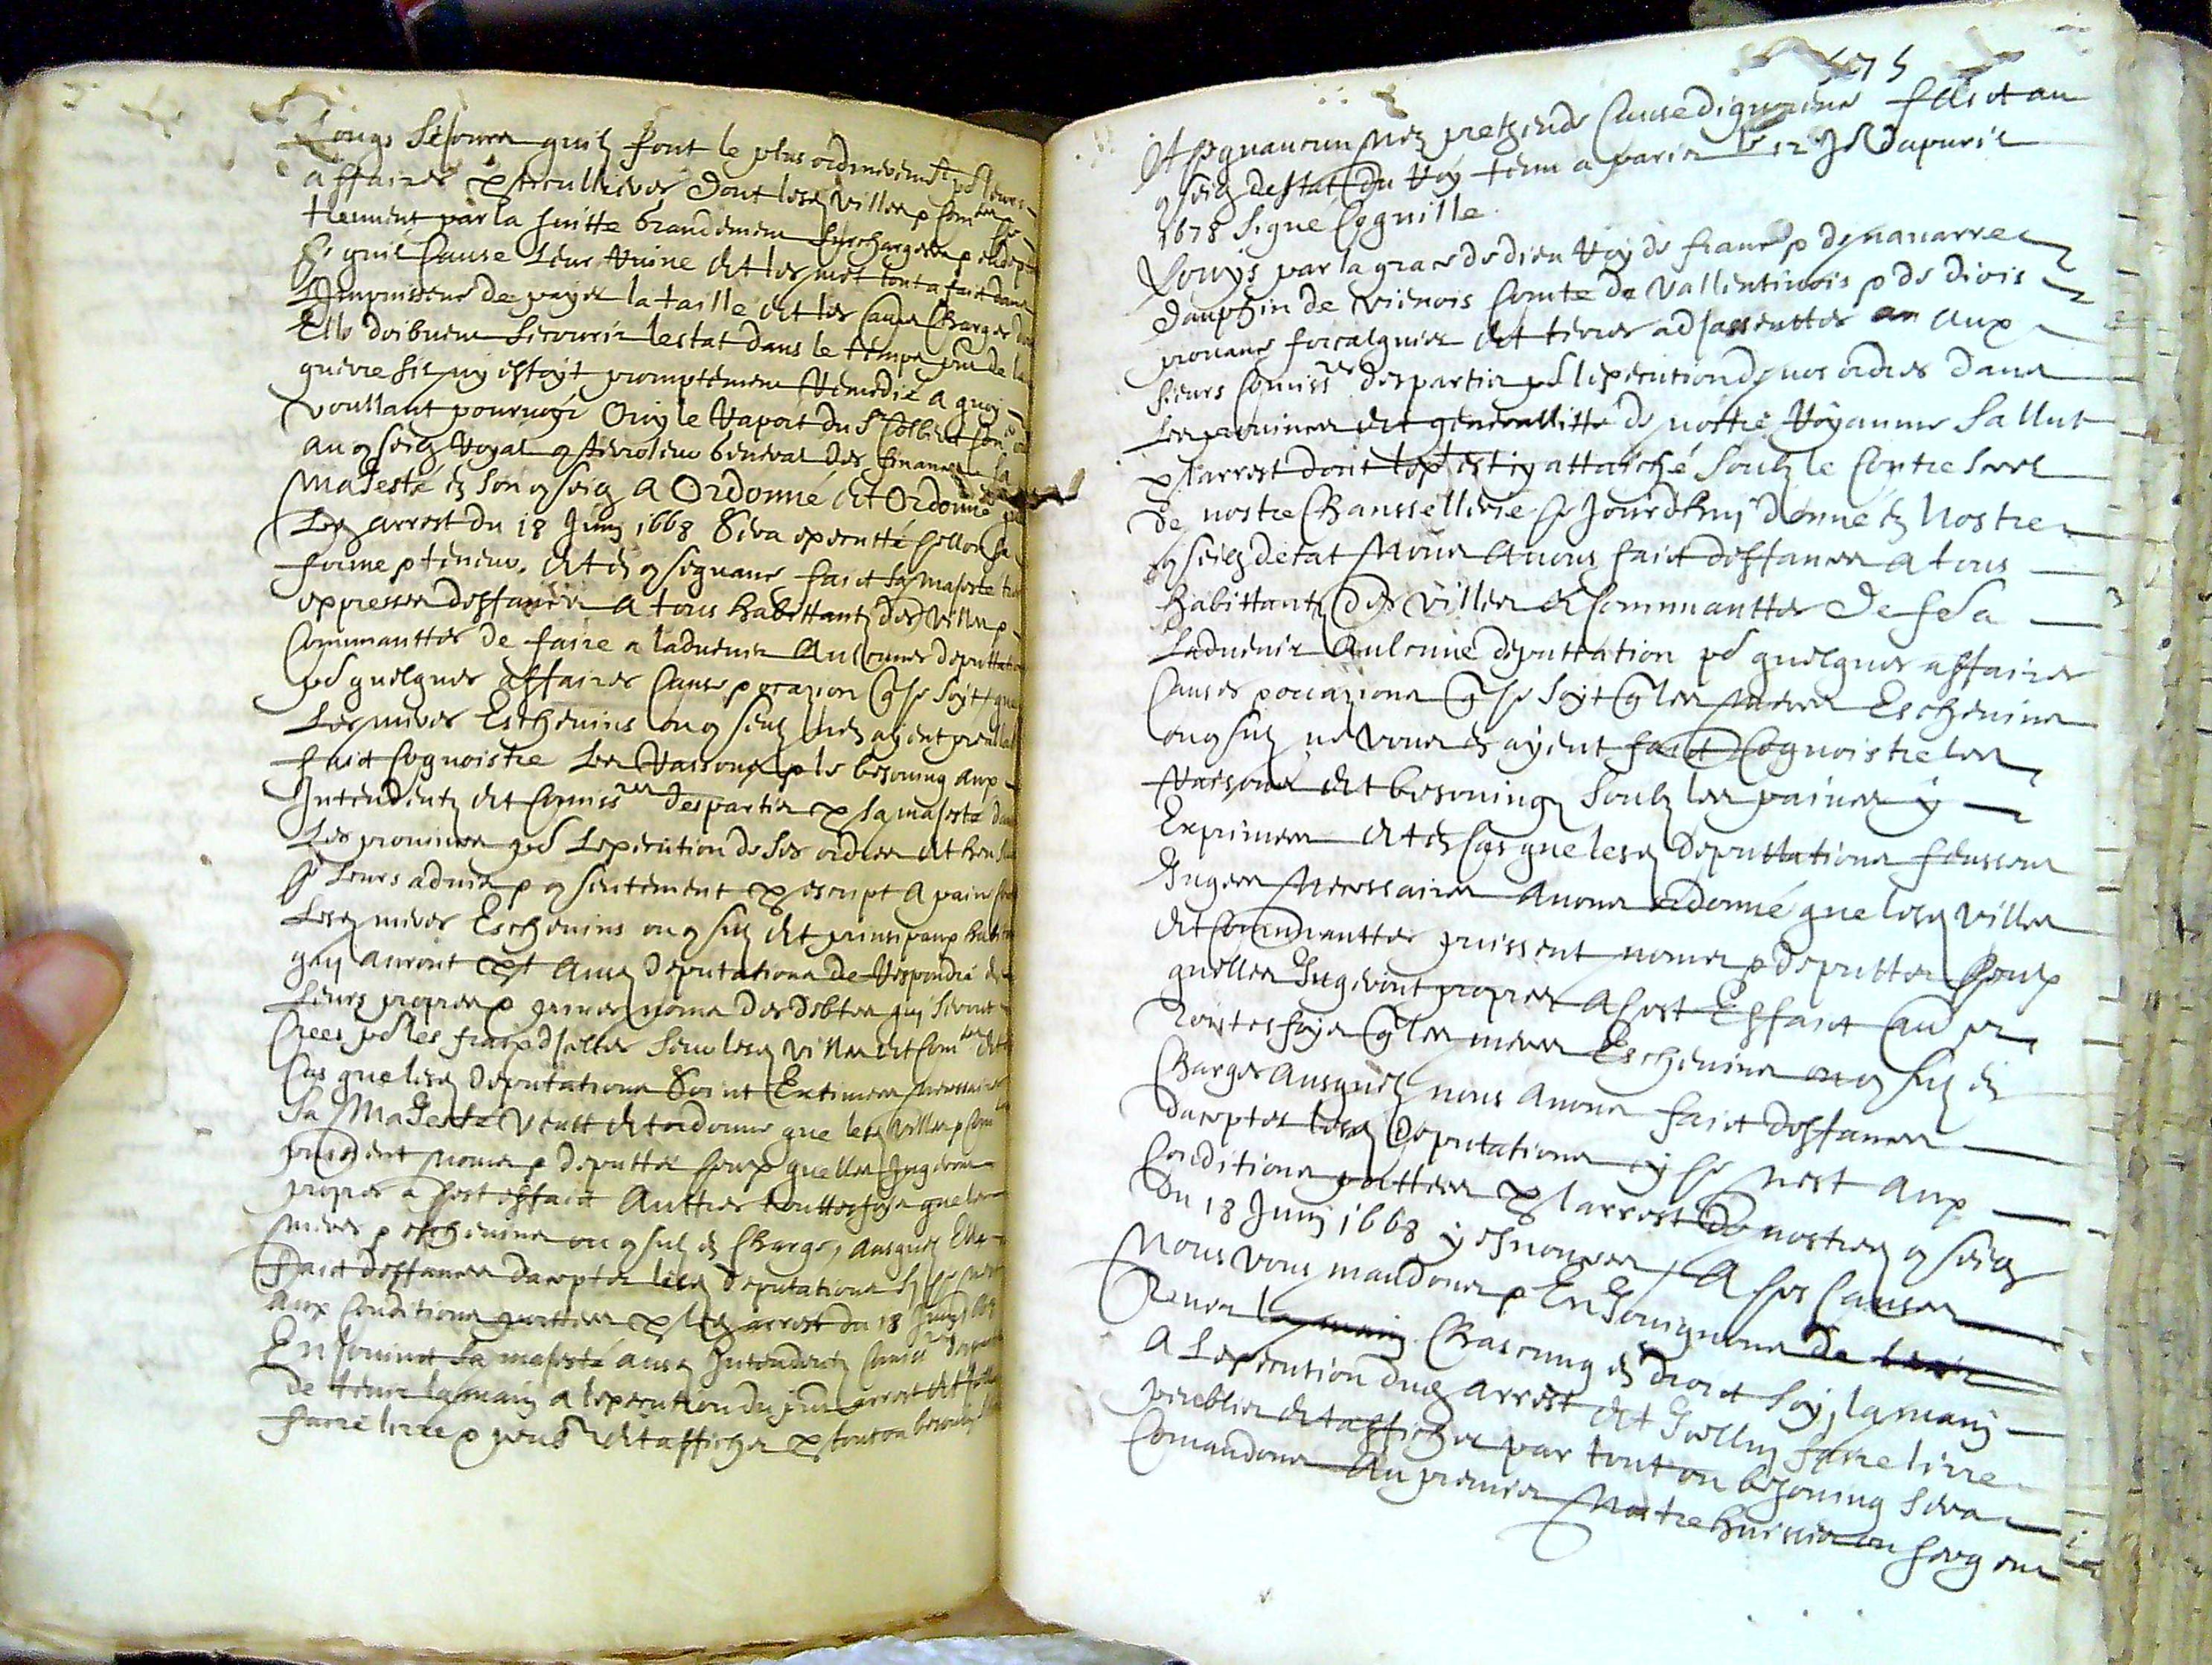 Longs Sejours quilz font le plus ordinairemt pr leurs
affaires particullieres Dont lesd villes &
tlement par la suitte Grandement surchargees &
quil Cause Leur Ruine et les met tout a fait dans
Limpuissance de payer la taille et les Charges
Elle doibuent secourir lestat dans le temps pnt de la
guerre sil ny estoyt promptement Remedié a quoy
Voullant pourvoyr Ouy le Raport du Sr Colbert
au conseig Royal controleur General des finances Sa
Majesté en son conseig A Ordonné et Ordonne que
Led arrest du 18 Juing 1668 Sera executté sellon sa
forme & teneur, et en consequance faict sa majeste
expresses deffances A tous habittantz des villes &
Communauttes de faire a ladvenir Aulcunes deputtations
pr quelques affaires Cause & ocazion que se soyt que
Les maires Eschevins ou consulz nen ayent
faict Cognoistre Les Raisons & le besoning aux
Intendentz et Comissres Despartis par sa majeste dans
Les provinces pr Lexecution de ses ordres et
Leurs advis & consentement par escript A paine
Lesd maires Eschevins ou consulz et prinsipaux
quy auront part Ausd Deputations de Respondre en
Leurs propres & prives noms Des Debtes quy seront
Crees pr les frais dicelles sur lesd villes et Comtes et
Cas que lesd Deputations soint Estimees necessaires
Sa Majesté Veutt et ordonne que lesd villes &
puissent nomer & deputter seux quelles Jugeront
propres a sest effaict Auttres touttesfoys que les
maires & eschevins ou consulz en Charge, Ausquelz Elle
faict deffances dacepter lesd Deputations sy se nest
aux Conditions porttees par led arrest du 18 Juing
Enjoinct sa majesté ausd Intendentz Comisres
de tenir la main a lexecution du pnt arrest et
faire lirre & publier et afficher partout ou besoning
575
Et quaucun Nen prethende Cause dignorance faict au
conseig destat du Roy tenu a paris le 12 Jr Dapvril
1678 Signé Coquille
Louys par la grace de dieu Roy de france & de navarre
dauphin de vienois Comte de Vallentinois & de diois
provance forcalquier et terres adjassenttes aux
sieurs Comissres despartis pr lexecution de nos ordres dans
Les provinces et generallitte de nostre Royaume Sallut
par larrest dont lext est cy attasché soubz le Contre seel
de nostre Chanssellerie se Jourdhuy donné en Nostre
conseig detat Nous Avons faict deffances A tous
habittantz des villes & Communauttes de fere a
Ladvenir Aulcune deputtation pr quelques affaires
Causes & occazions que se soyt que les maires Eschevins
ou consulz ne vous en ayent faict Cognoistre les
Raisons et besoningz Soubz les paines y
Exprimees et en Cas que lesd Deputtations feussent
Jugees Necessaires Avons ordonné que lesd villes
et Communauttes puissent nomer & deputter seux
quelles Jugeront propres A sest Effaict
touttesfoys que les maires Eschevins ou consulz en
Charges Ausquelz nous Avons faict deffances
dacepter lesd Deputations sy se nest aux
Conditions porttees par larrest De nostred conseig
du 18 Juing 1668 y esnonsees, A ses Causes
Nous vous mandons & Enjoignons de
Chascung en droict soy, la main
A Lexecution dud arrest et Icelluy faire lirre
publier et afficher par tout ou bezoning sera
Comandons Au premier Nostre huissier ou serg sur